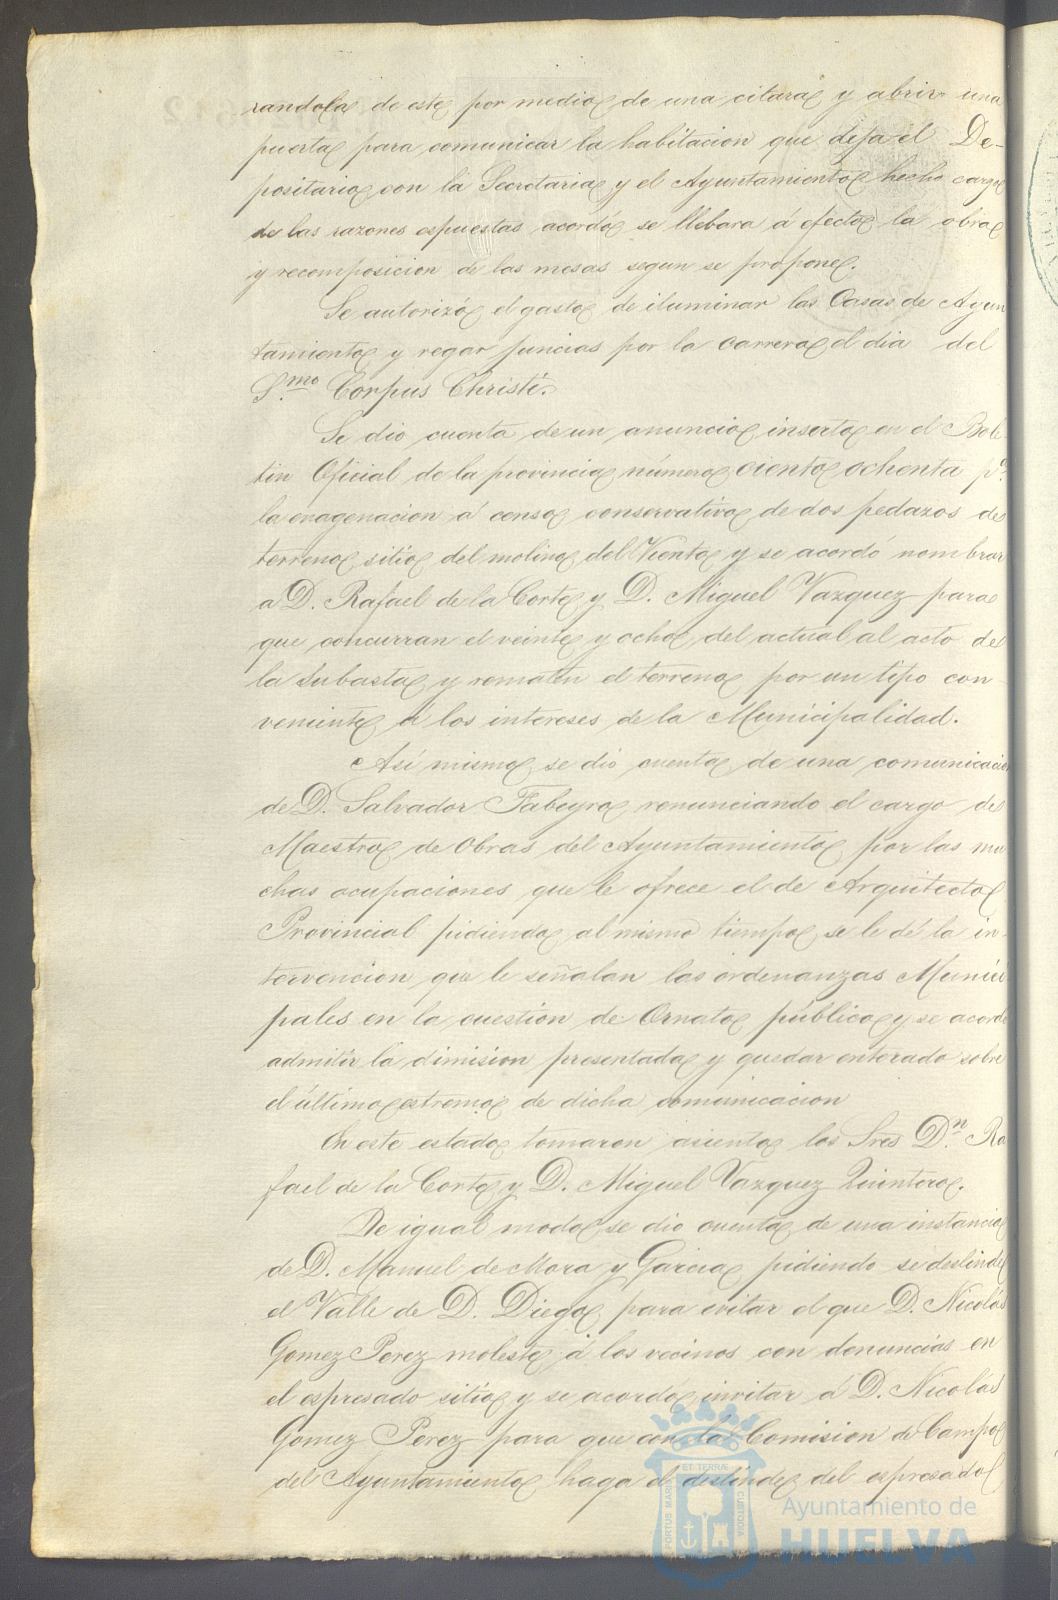 randola de este por medio de una citara y abrir una
puerta para comunicar la habitacion que deja el De-
positario con la Secretaria y el Ayuntamiento hecho cargo
de las razones espuestas acordó se llebara á efecto la obra
y recomposicion de las mesas segun se propone.
Se autorizó el gasto de iluminar las Casas de Ayun
tamiento y regar juncias por la carrera el dia del
S.mo Corpus Christi.
Se dio cuenta de un anuncio inserto en el Bole
tin Oficial de la provincia número ciento ochenta p.a
la enagenacion á censo conservativo de dos pedazos de
terreno sitio del molino del Viento y se acordó nombrar
a D. Rafael de la Corte y D. Miguel Vazquez para
que concurran el veinte y ocho del actual al acto de
la subasta y rematen el terreno por un tipo con-
veniente á los intereses de la Municipalidad.
Asi mismo se dio cuenta de una comunicacion
de D. Salvador Tabeyro renunciando el cargo de
Maestro de Obras del Ayuntamiento por las mu
chas ocupaciones que le ofrece el de Arquitecto
Provincial pidiendo al mismo tiempo se le dé la in-
tervencion que le señalan las ordenanzas Munici
pales en la cuestion de Ornato público y se acordó
admitir la dimision presentada y quedar enterado sobre
el último estremo de dicha comunicacion
En este estado tomaron asiento los Sres D.n Ra
fael de la Corte y D. Miguel Vazquez Quintero.
De igual modo se dio cuenta de una instancia
de D. Manuel de Mora y Garcia pidiendo se deslinde
el Valle de D. Diego para evitar el que D. Nicolás
Gomez Perez moleste á los vecinos con denuncias en
el espresado sitio y se acordó invitar á D. Nicolás
Gomez Perez para que con la Comision de Campo
del Ayuntamiento haga el deslinde del espresado
PORTUS MARIS ET TERRÆ CUSTODIA
Ayuntamiento de
HUELVA